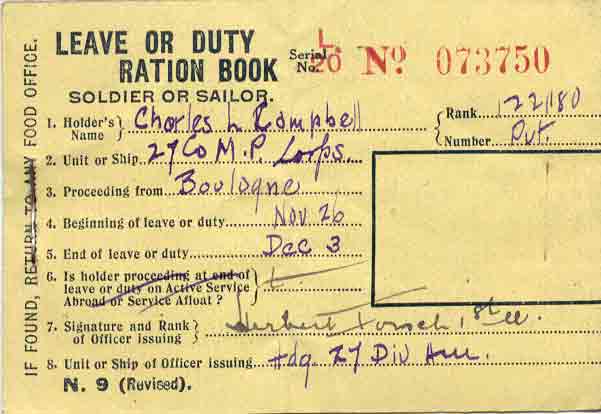 IF FOUND, RETURN TO ANY FOOD OFFICE.
LEAVE OR DUTY
RATION BOOK
SOLDIER OR SAILOR.
Serial No. L.20 No 073750
1. Holder's Name } Charles L Campbell
{ Rank 122180
Number Pvt.
2. Unit or Ship 27 Co M.P. Corps.
3. Proceeding from Boulogne
4. Beginning of leave or duty Nov 26
5. End of leave or duty Dec 3
6. Is holder proceeding at end of
leave or duty on Active Service
Abroad or Service Afloat ?
7. Signature and Rank
of Officer issuing } Herbert 1st
8. Unit or Ship of Officer issuing Hdq. 27 Div
N. 9 (Revised).